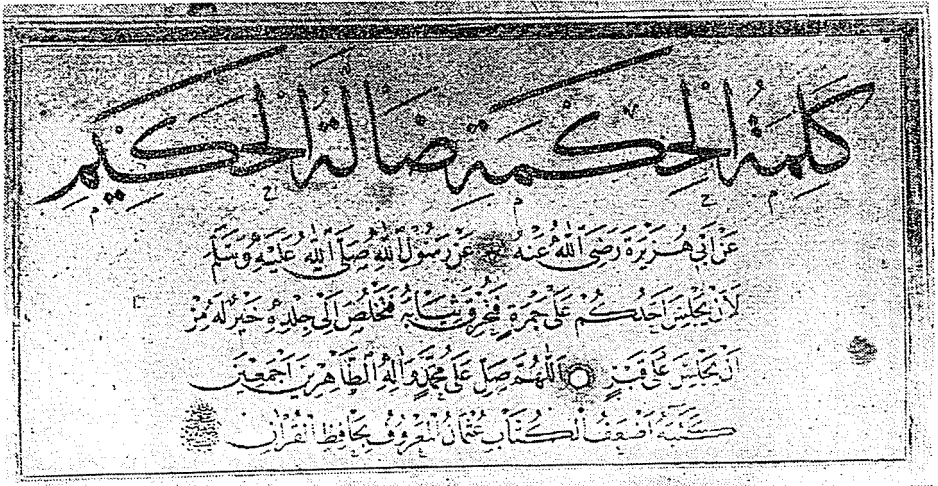 كَلِمَةُ الْحِكْمَةِ ضَالَّةُ الْحَكِيمِ
عَنْ أَبِي هُرَيْرَةَ رَضِيَ اللّٰهُ عَنْهُ عَنْ رَسُولِ اللّٰهِ صَلَّى اللّٰهُ عَلَيْهِ وَسَلَّمَ
لَاَنْ يَجْلِسَ اَحَدُكُمْ عَلَى جَمْرَةٍ فَتُحْرِقَ ثِيَابَهُ فَتَخْلُصَ اِلَى جِلْدِهِ خَيْرٌ لَهُ مِنْ
اَنْ يَجْلِسَ عَلَى قَبْرٍ اَللّٰهُمَّ صَلِّ عَلَى مُحَمَّدٍ وَاٰلِهِ الطَّاهِرِينَ اَجْمَعِينَ
كَتَبَهُ اَضْعَفُ الْكُتَّابِ عُثْمَانُ الْمَعْرُوفُ بِحَافِظِ الْقُرْاٰنِ